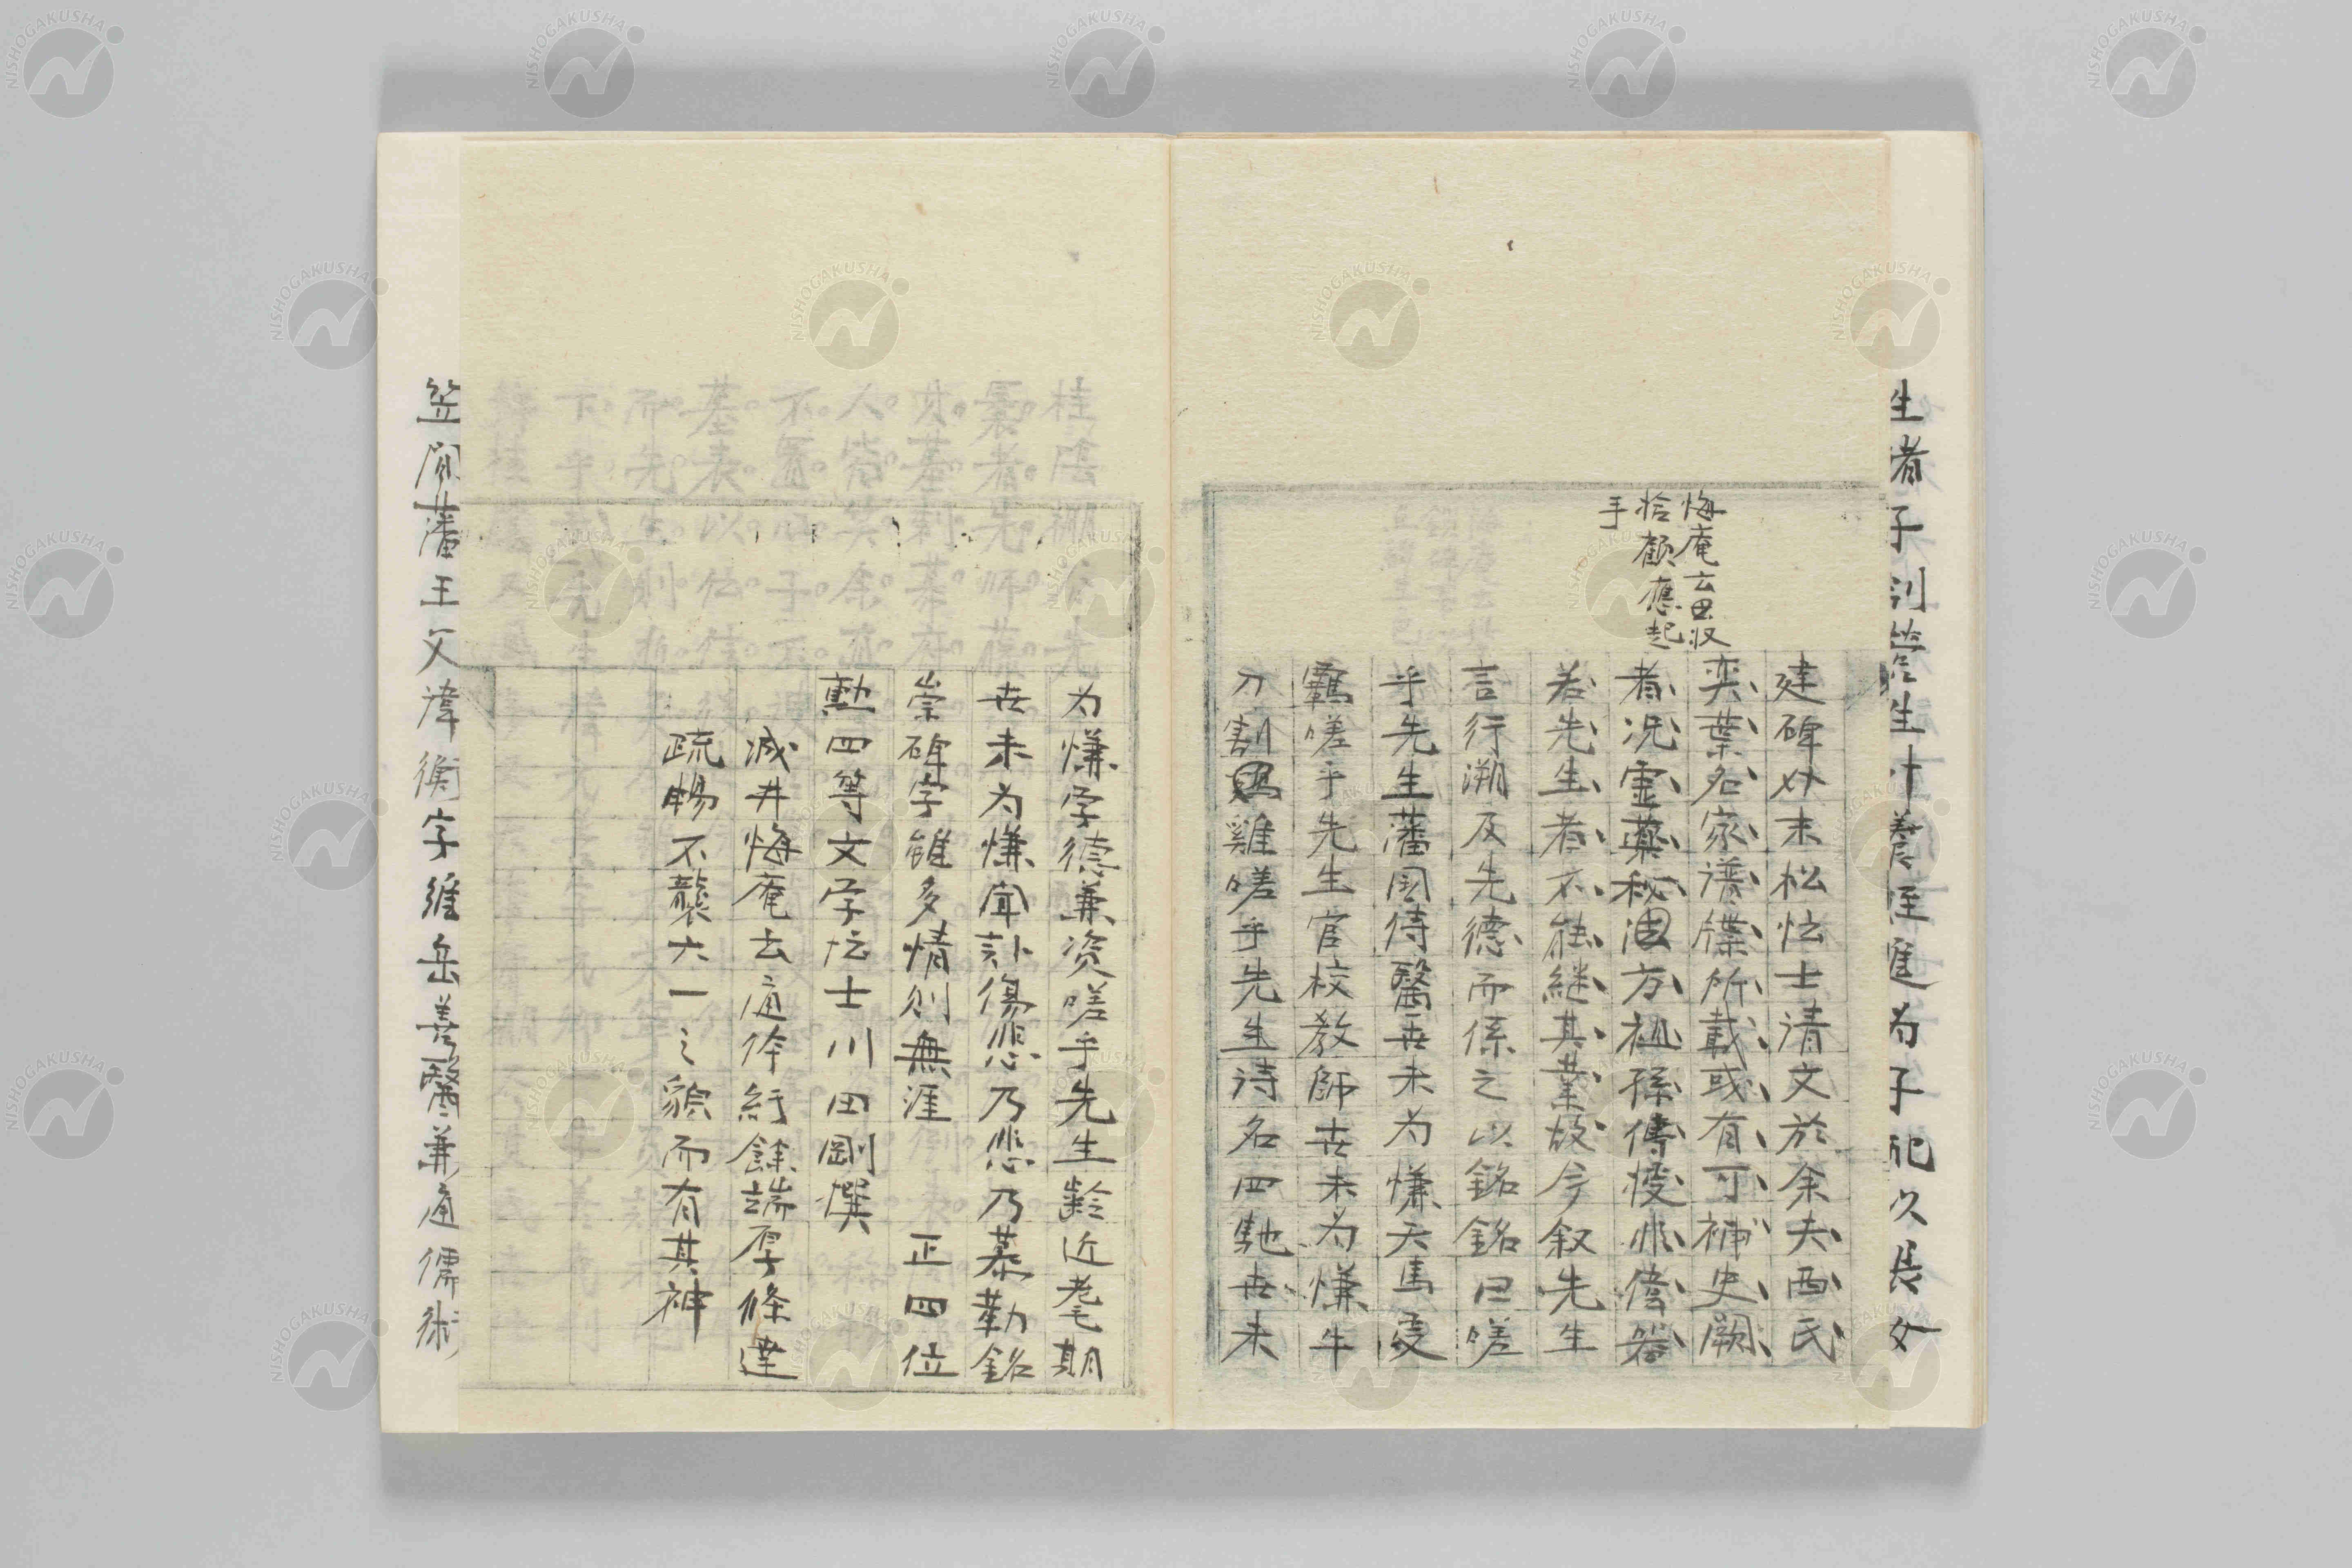 生者子判 生十養 進為子配久長女
悔庵云 収
拾顧應起
手
建碑以未松怯士請文於余夫西氏
奕葉名家譜牒所載或有可補史闕
者況靈藥秘 方祖孫傳授非偉器
若先生者不能継其業故今叙先生
言行溯及先德而係之以銘銘曰嗟
乎先生藩國侍醫世未為慊天馬受
羈嗟乎先生官校教師世未為慊牛
刀割 雞嗟乎先生詩名四馳世未
為慊学德兼資嗟乎先生齡近耄期
世未為慊聞訃傷悲乃悲乃慕勒銘
崇碑字雖多情則無涯 正四位
勳四等文学 士川田剛撰
減井悔庵云 徐紆餘端厚條達
疏暢不襲六一之貌而有其神
笠間藩王父諱衡字維岳善醫兼通儒術
NISHOGAKUSHA